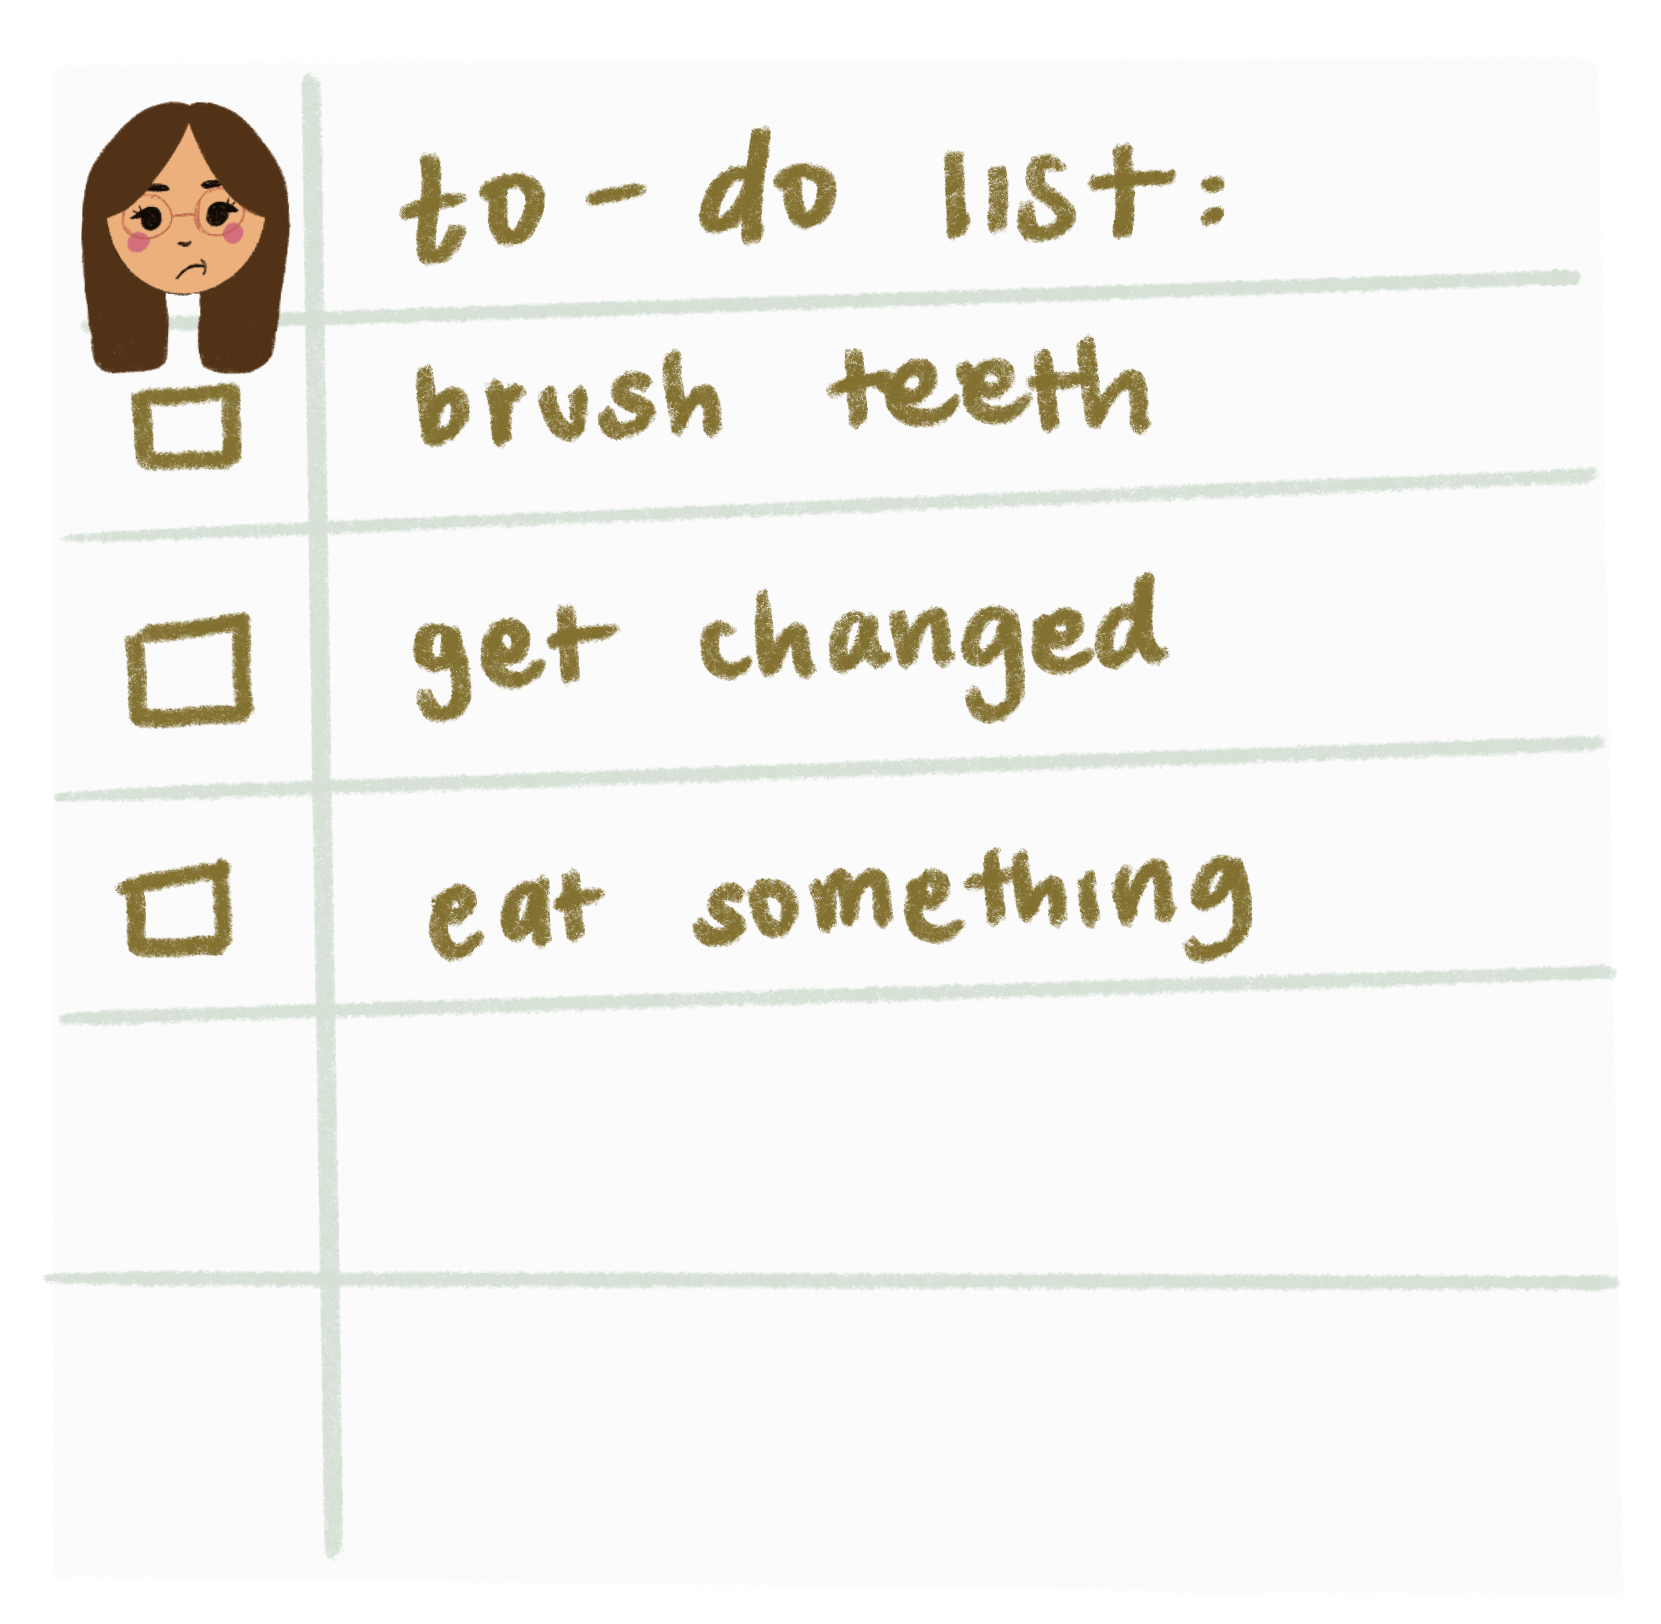 to-do list:
brush teeth
get changed
eat something